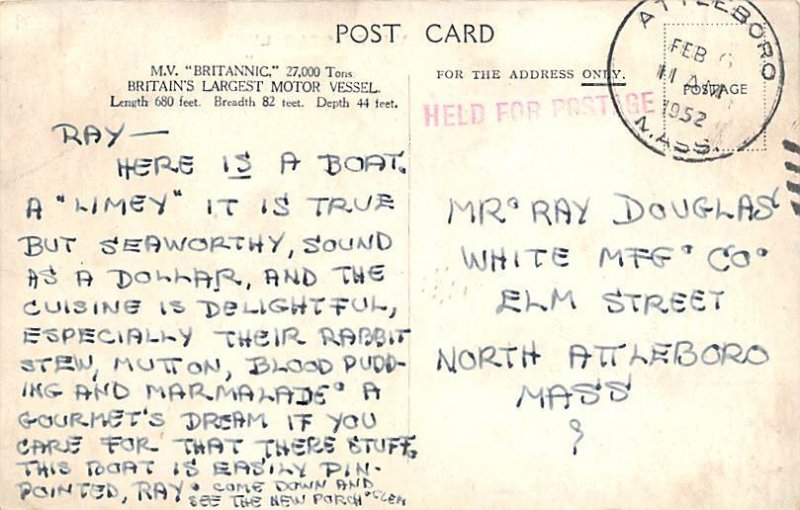 POST CARD
M.V. "BRITANNIC," 27,000 Tons
BRITAIN'S LARGEST MOTOR VESSEL.
Length 680 feet. Breadth 82 feet. Depth 44 feet.
FOR THE ADDRESS ONLY.
HELD FOR POSTAGE
ATTLEBORO
FEB 6
11 AM
1952
MASS.
POSTAGE
RAY—
HERE IS A BOAT.
A "LIMEY" IT IS TRUE
BUT SEAWORTHY, SOUND
AS A DOLLAR, AND THE
CUISINE IS DELIGHTFUL,
ESPECIALLY THEIR RABBIT
STEW, MUTTON, BLOOD PUDD-
ING AND MARMALADE. A
GOURMET'S DREAM IF YOU
CARE FOR THAT THERE STUFF.
THIS BOAT IS EASILY PIN-
POINTED, RAY. COME DOWN AND
SEE THE NEW PORCH. GLEN
MR. RAY DOUGLAS
WHITE MFG. CO.
ELM STREET
NORTH ATTLEBORO
MASS